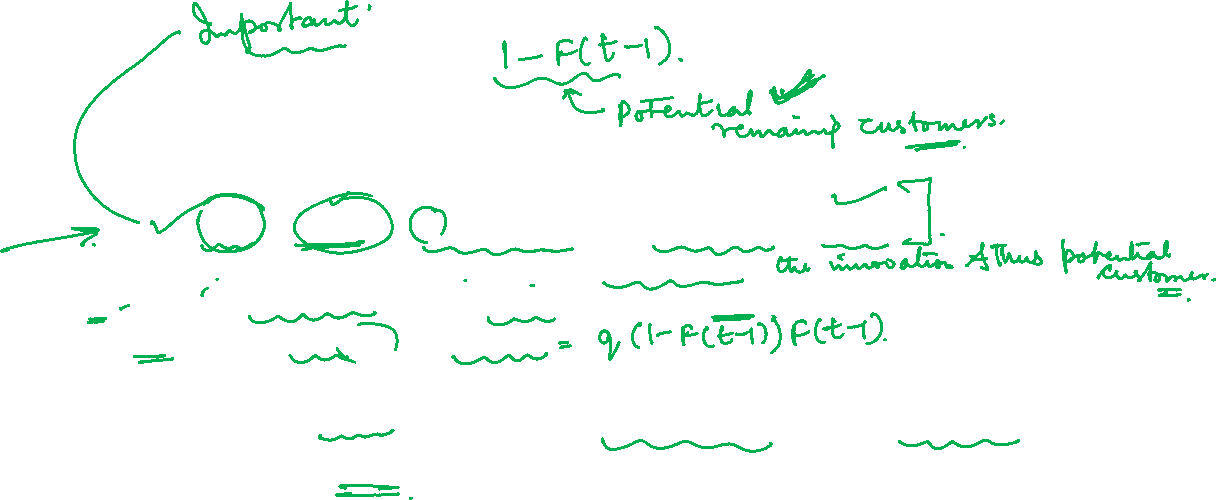 Important:
1 - F(t-1).
Potential
remaining customers.
the innovation & thus potential
customer.
= q (1 - F(t-1)) F(t-1).